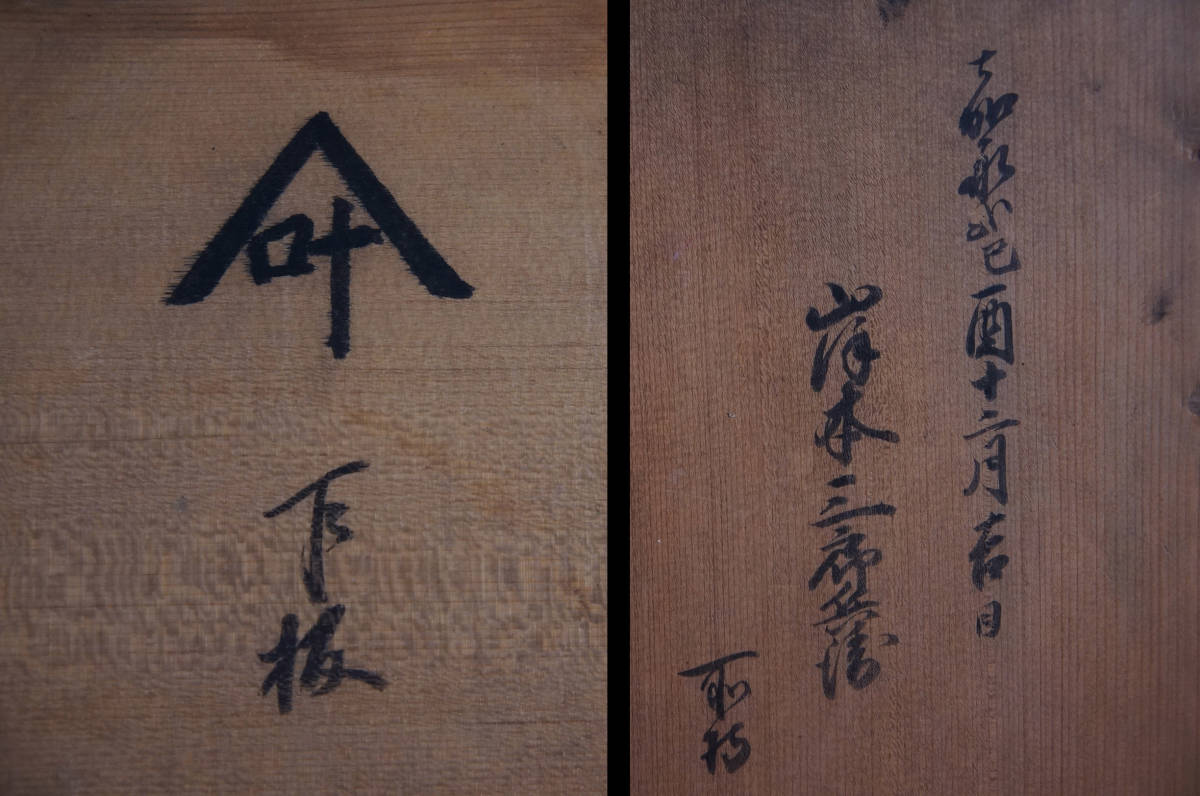 叶
下板
嘉永弐己酉十二月吉日
岸本三郎兵衛
所持